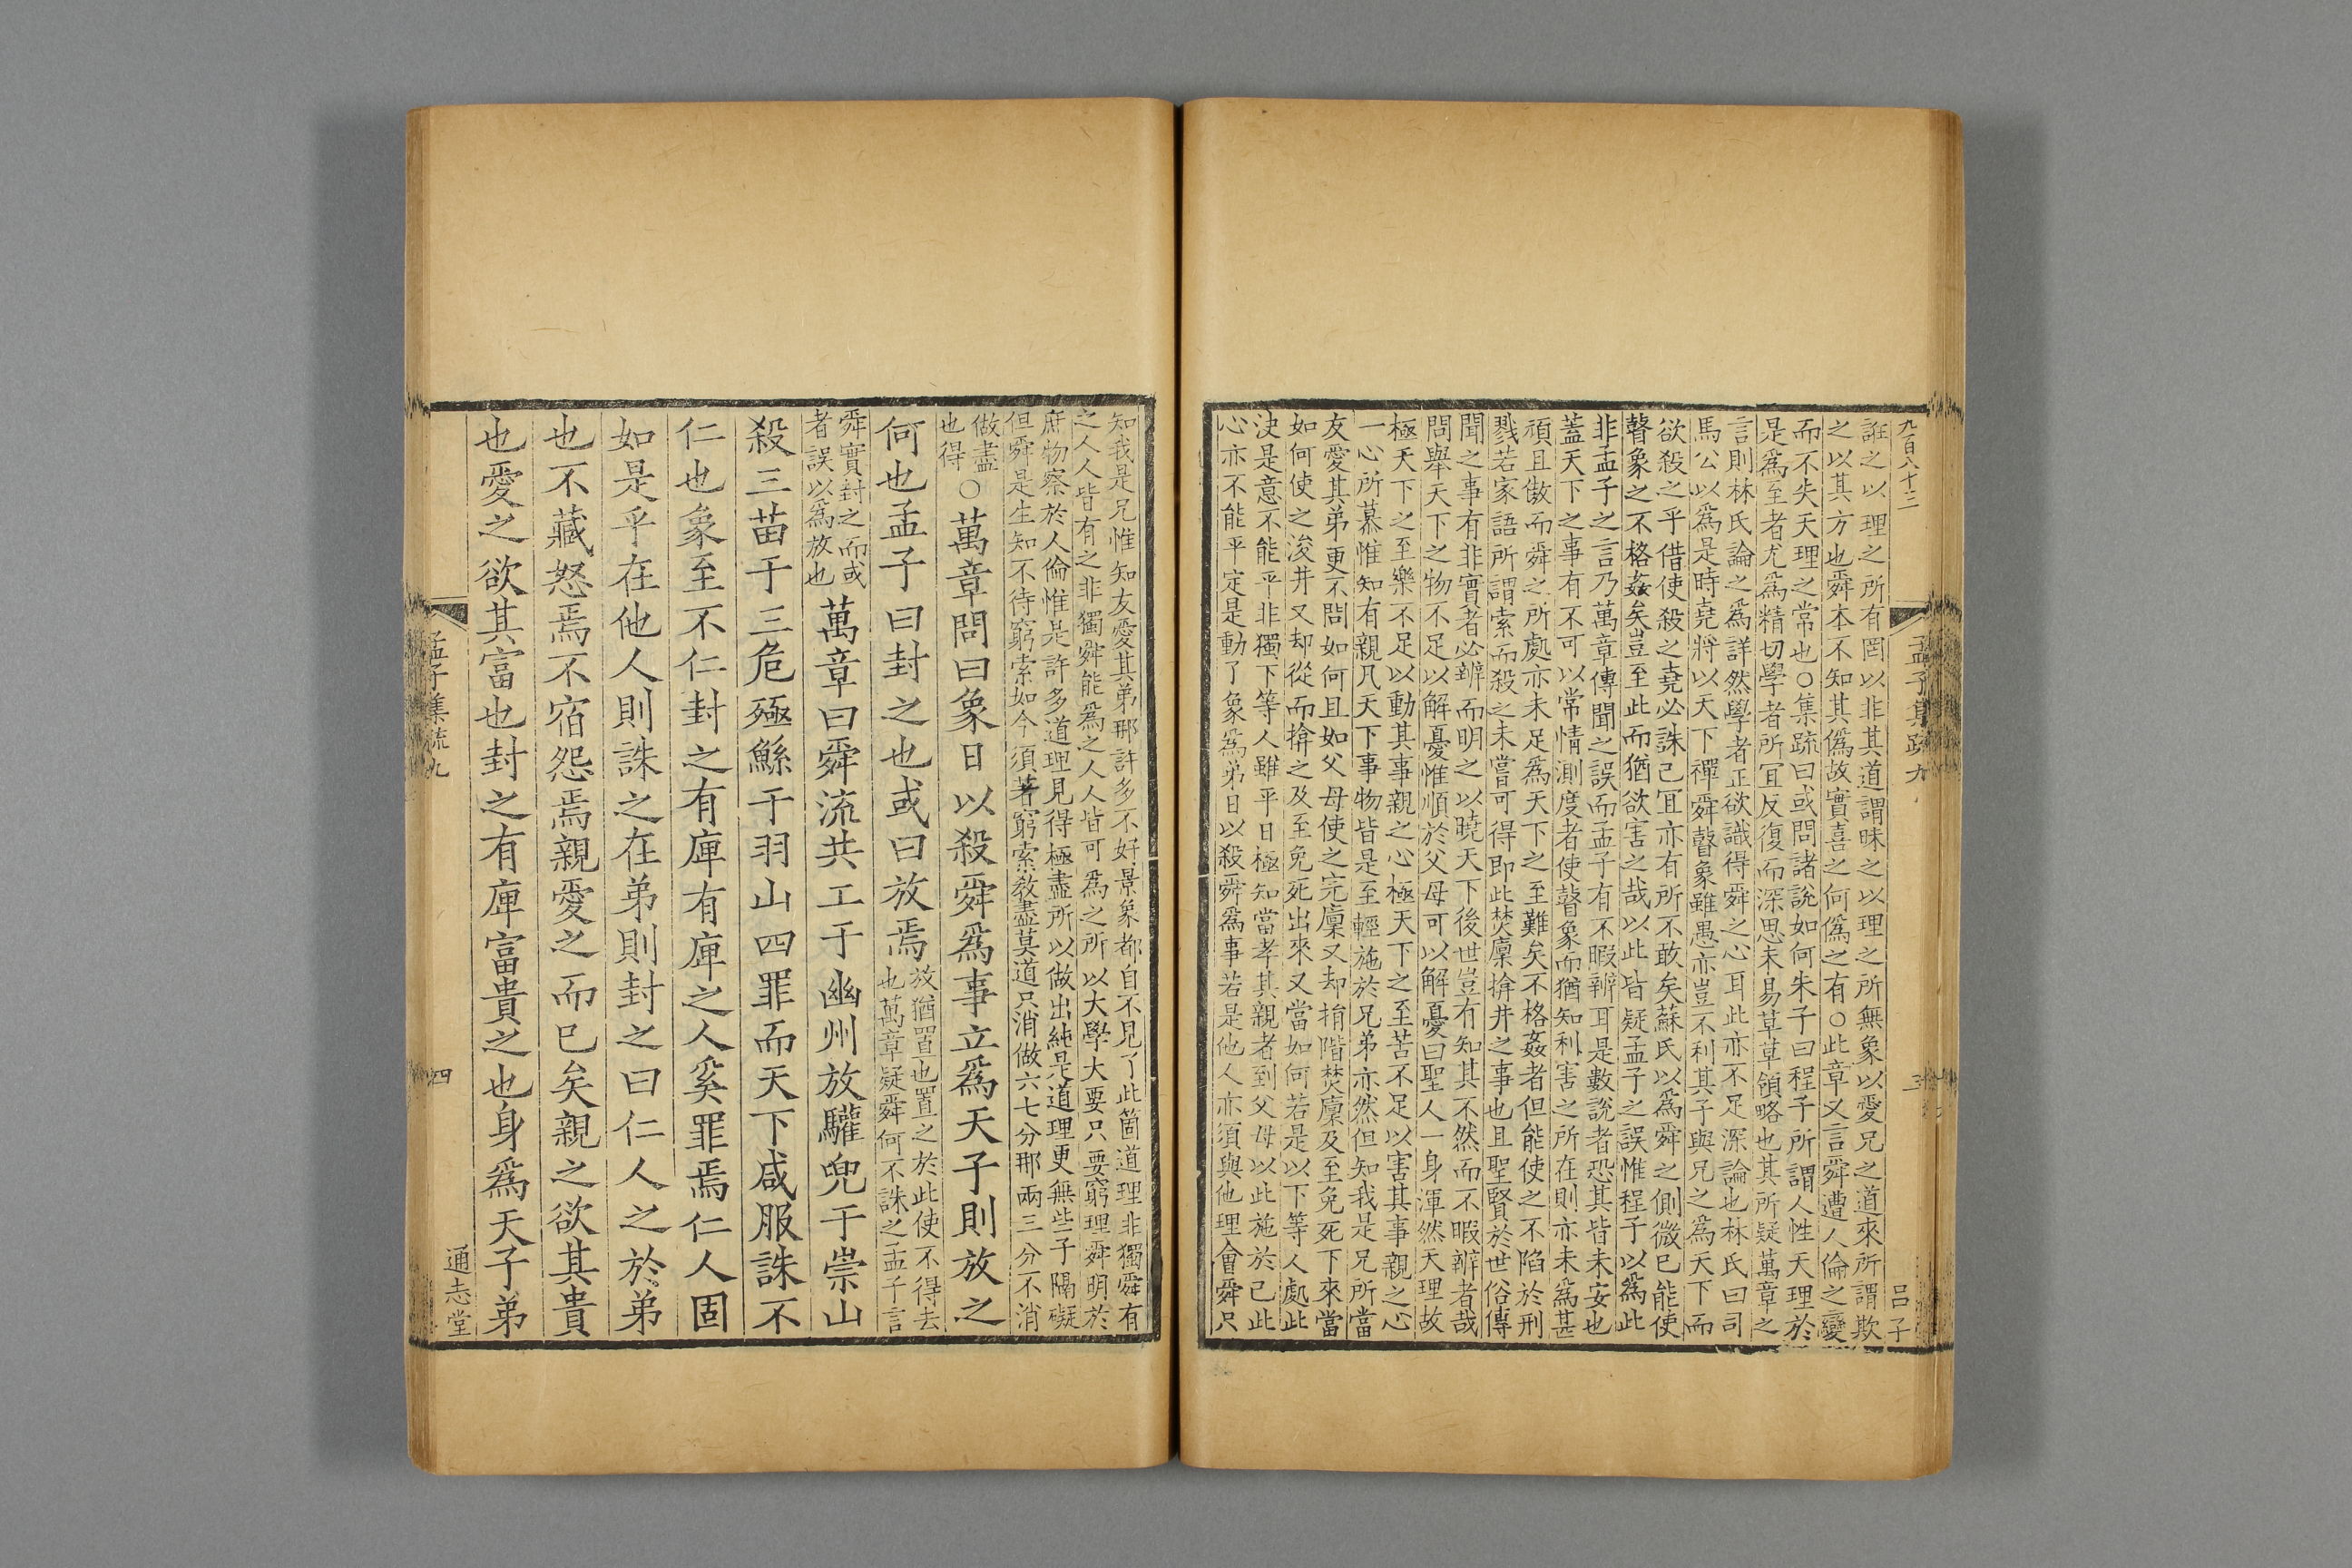 九百八十二
孟子集疏九
三
呂子
誑之以理之所有罔以非其道謂昧之以理之所無象以愛兄之道來所謂欺
之以其方也舜本不知其僞故實喜之何僞之有○此章又言舜遭人倫之變
而不失天理之常也○集疏曰或問諸說如何朱子曰程子所謂人性天理於
是爲至者尤爲精切學者所宜反復而深思未易草草領略也其所疑萬章之
言則林氏論之爲詳然學者正欲識得舜之心耳此亦不足深論也林氏曰司
馬公以爲是時堯將以天下禪舜瞽象雖愚亦豈不利其子與兄之爲天下而
欲殺之乎借使殺之堯必誅己宜亦有所不敢矣蘇氏以為舜之側微已能使
瞽象之不格姦矣豈至此而猶欲害之哉以此皆疑孟子之誤惟程子以爲此
非孟子之言乃萬章傳聞之誤而孟子有不暇辨耳是數說者恐其皆未安也
蓋天下之事有不可以常情測度者使瞽象而猶知利害之所在則亦未爲甚
頑且傲而舜之所處亦未足爲天下之至難矣不格姦者但能使之不陷於刑
戮若家語所謂索而殺之未嘗可得即此焚廩揜井之事也且聖賢於世俗傳
聞之事有非實者必辨而明之以曉天下後世豈有知其不然而不暇辨者哉
問舉天下之物不足以解憂惟順於父母可以解憂曰聖人一身渾然天理故
極天下之至樂不足以動其事親之心極天下之至苦不足以害其事親之心
一心所慕惟知有親凡天下事物皆是至輕施於兄弟亦然但知我是兄所當
友愛其弟更不問如何且如父母使之完廩又却捐階焚廩及至免死下來當
如何使之浚井又却從而揜之及至免死出來又當如何若是以下等人處此
決是意不能平非獨下等人雖平日極知當孝其親者到父母以此施於己此
心亦不能平定是動了象爲弟日以殺舜爲事若是他人亦須與他理會舜只
知我是兄惟知友愛其弟那許多不好景象都自不見了此箇道理非獨舜有
之人人皆有之非獨舜能爲之人人皆可爲之所以大學大要只要窮理舜明於
庶物察於人倫惟是許多道理見得極盡所以做出純是道理更無些子隔礙
但舜是生知不待窮索如今須著窮索教盡莫道只消做六七分那兩三分不消
做盡
也得
○萬章問曰象日以殺舜爲事立爲天子則放之
何也孟子曰封之也或曰放焉
放猶置也置之於此使不得去
也萬章疑舜何不誅之孟子言
舜實封之而或
者誤以爲放也
萬章曰舜流共工于幽州放驩兜于崇山
殺三苗于三危殛鯀于羽山四罪而天下咸服誅不
仁也象至不仁封之有庳有庳之人奚罪焉仁人固
如是乎在他人則誅之在弟則封之曰仁人之於弟
也不藏怒焉不宿怨焉親愛之而已矣親之欲其貴
也愛之欲其富也封之有庳富貴之也身爲天子弟
孟子集疏九
四
通志堂